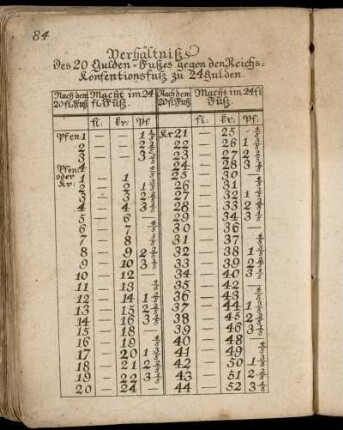 84
Verhältniß
Des 20 Gulden-Fußes gegen den Reichs-
Konfentionsfuß zu 24 Gulden.
Nach dem 20 fl. Fuß Macht im 24 fl. Fuß. Nach dem 20 fl. Fuß Macht im 24 fl. Fuß.
fl. kr. pf. fl. kr. pf.
Pfen 1 — — 1 1/5 Kr 21 — 25 — 4/5
2 — — 2 2/5 22 — 26 1 3/5
3 — — 3 3/5 23 — 27 2 2/5
4 24 — 28 3 1/5
Pfen oder Kr 1 — 1 — 4/5 25 — 30 —
2 — 2 1 3/5 26 — 31 — 4/5
3 — 3 2 2/5 27 — 32 1 3/5
4 — 4 3 1/5 28 — 33 2 2/5
5 — 6 — 29 — 34 3 1/5
6 — 7 — 4/5 30 — 36 —
7 — 8 1 3/5 31 — 37 — 4/5
8 — 9 2 2/5 32 — 38 1 3/5
9 — 10 3 1/5 33 — 39 2 2/5
10 — 12 — 34 — 40 3 1/5
11 — 13 — 4/5 35 — 42 —
12 — 14 1 3/5 36 — 43 — 4/5
13 — 15 2 2/5 37 — 44 1 3/5
14 — 16 3 1/5 38 — 45 2 2/5
15 — 18 — 39 — 46 3 1/5
16 — 19 — 4/5 40 — 48 —
17 — 20 1 3/5 41 — 49 — 4/5
18 — 21 2 2/5 42 — 50 1 3/5
19 — 22 3 1/5 43 — 51 2 2/5
20 — 24 — 44 — 52 3 1/5